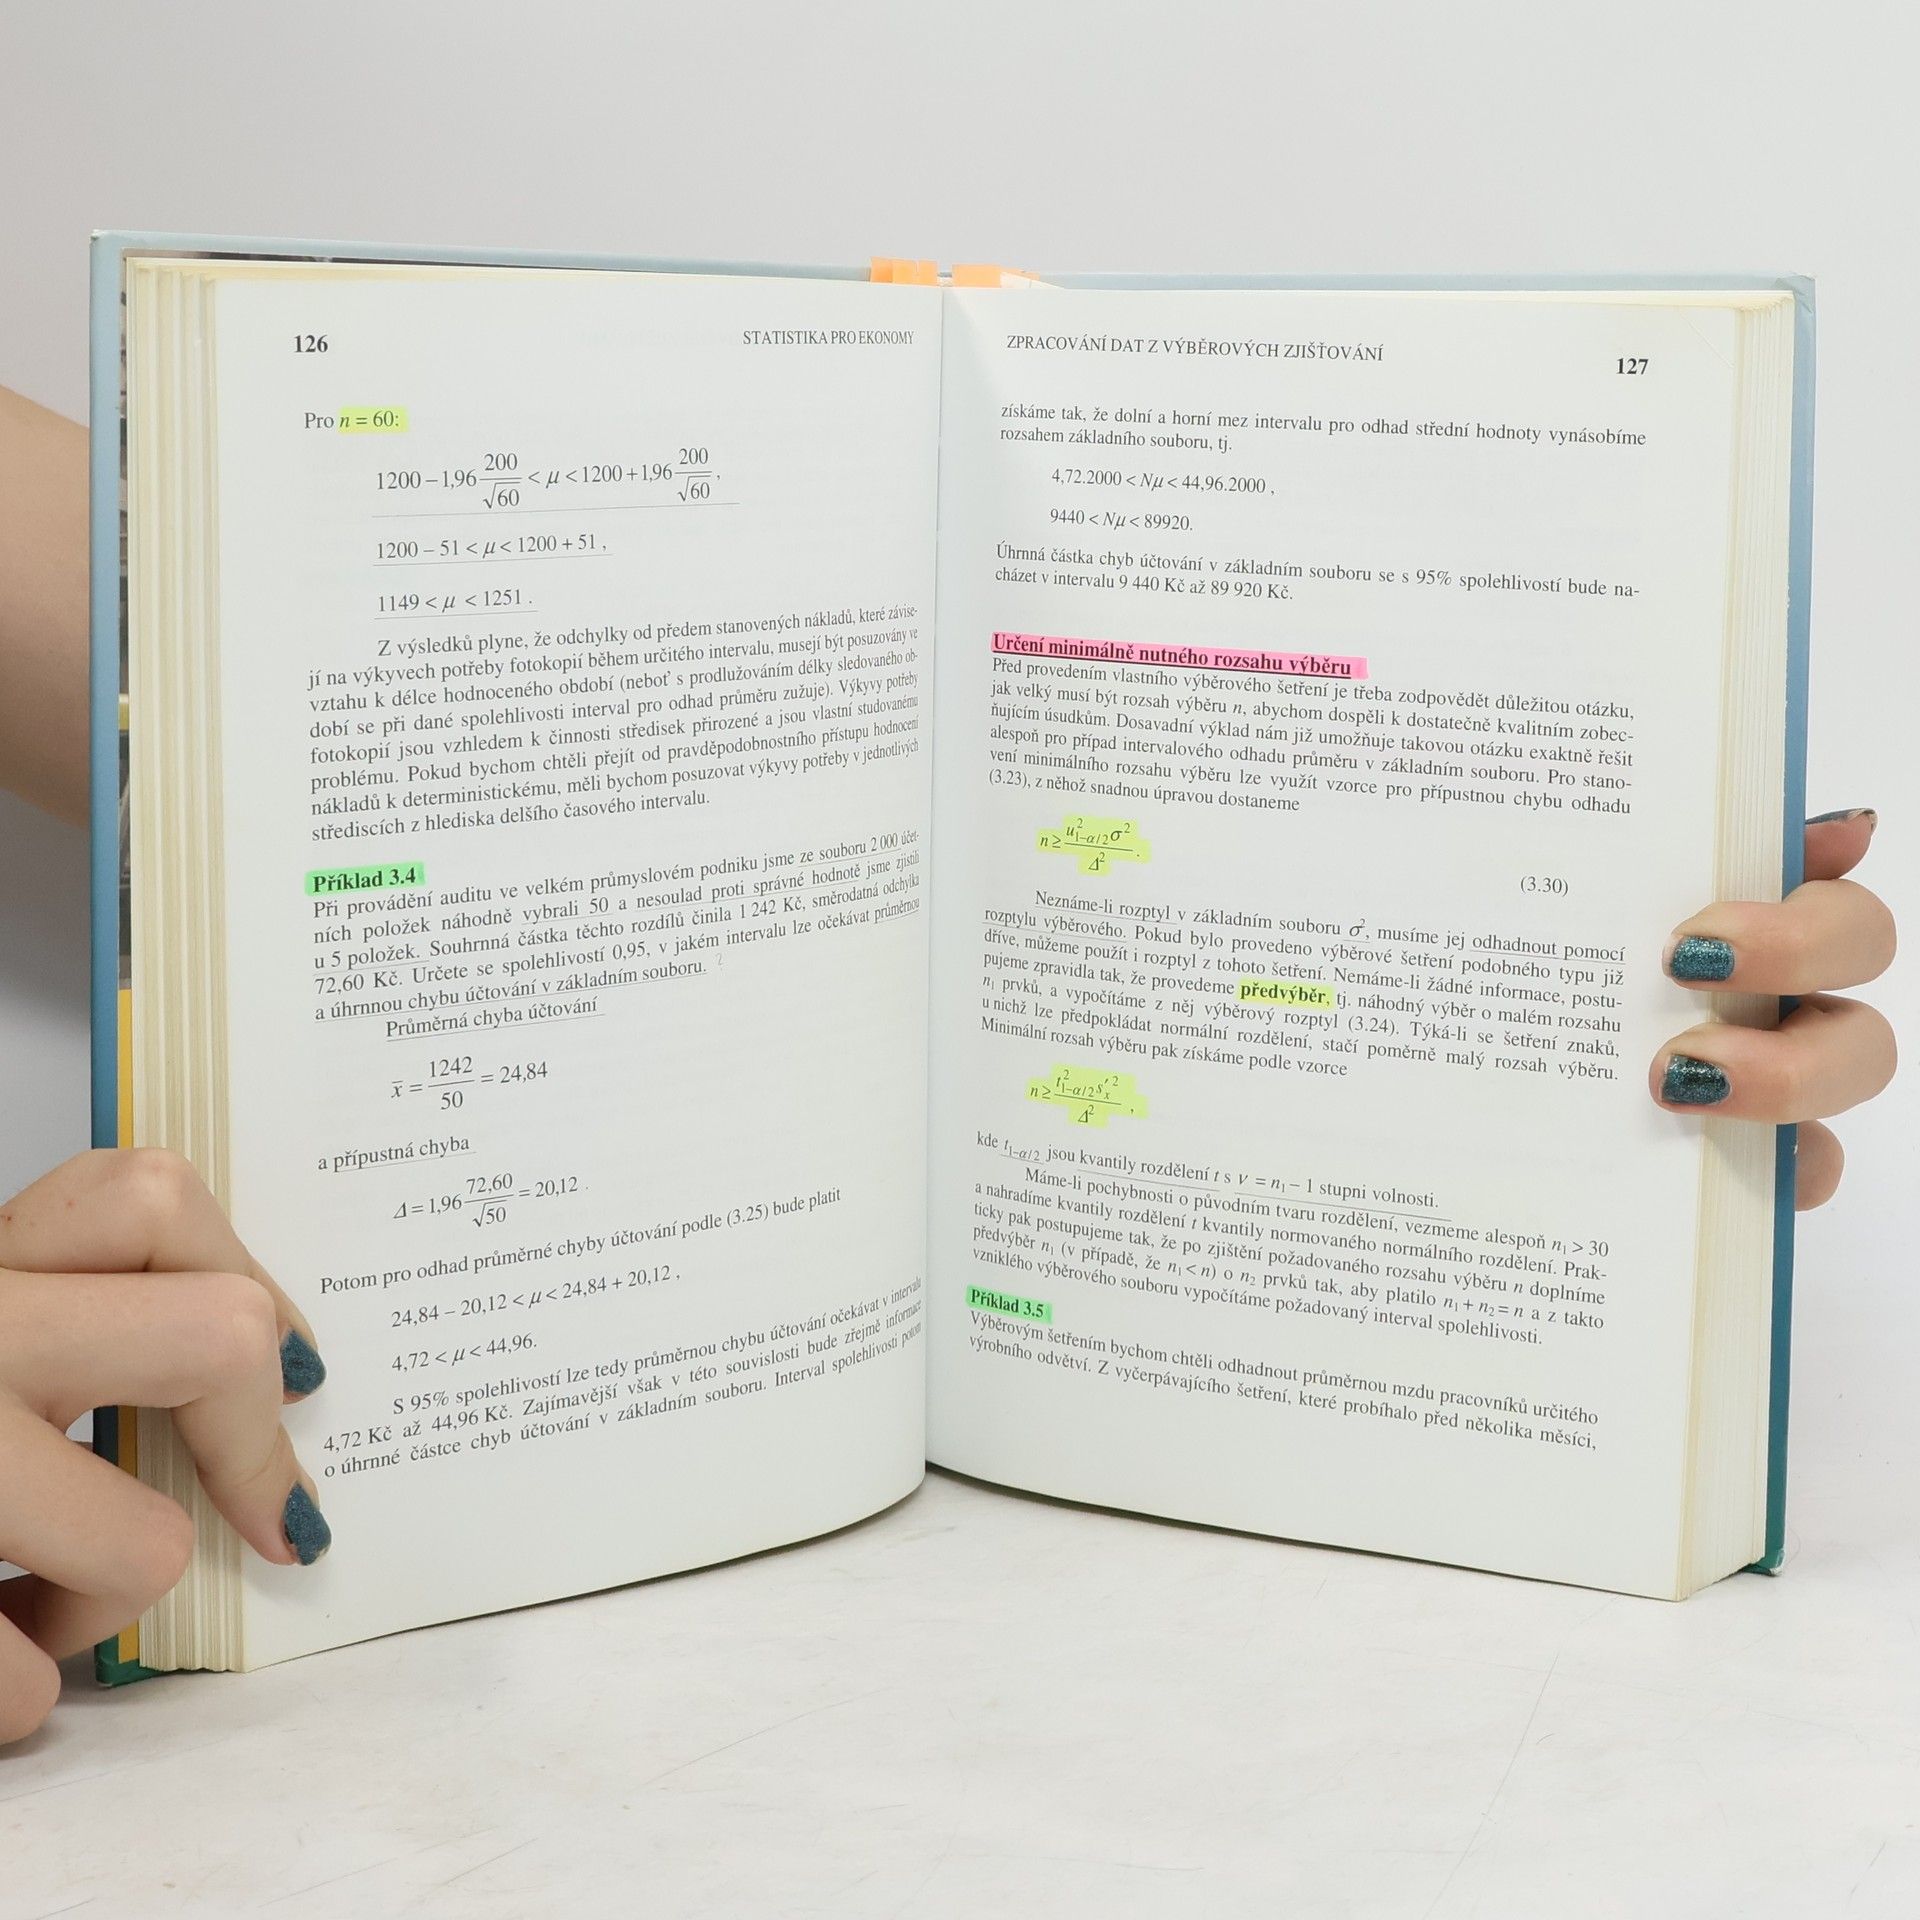 126
STATISTIKA PRO EKONOMY
Pro n = 60:
1200 – 1,96 200/√60 < μ < 1200 + 1,96 200/√60 ,
1200 – 51 < μ < 1200 + 51 ,
1149 < μ < 1251 .
Z výsledků plyne, že odchylky od předem stanovených nákladů, které závise-
jí na výkyvech potřeby fotokopií během určitého intervalu, musejí být posuzovány ve
vztahu k délce hodnoceného období (neboť s prodlužováním délky sledovaného ob-
dobí se při dané spolehlivosti interval pro odhad průměru zužuje). Výkyvy potřeby
fotokopií jsou vzhledem k činnosti středisek přirozené a jsou vlastní studovanému
problému. Pokud bychom chtěli přejít od pravděpodobnostního přístupu hodnocení
nákladů k deterministickému, měli bychom posuzovat výkyvy potřeby v jednotlivých
střediscích z hlediska delšího časového intervalu.
Příklad 3.4
Při provádění auditu ve velkém průmyslovém podniku jsme ze souboru 2 000 účet-
ních položek náhodně vybrali 50 a nesoulad proti správné hodnotě jsme zjistili
u 5 položek. Souhrnná částka těchto rozdílů činila 1 242 Kč, směrodatná odchylka
72,60 Kč. Určete se spolehlivostí 0,95, v jakém intervalu lze očekávat průměrnou
a úhrnnou chybu účtování v základním souboru. ?
Průměrná chyba účtování
x̄ = 1242/50 = 24,84
a přípustná chyba
Δ = 1,96 72,60/√50 = 20,12 .
Potom pro odhad průměrné chyby účtování podle (3.25) bude platit
24,84 – 20,12 < μ < 24,84 + 20,12 ,
4,72 < μ < 44,96.
S 95% spolehlivostí lze tedy průměrnou chybu účtování očekávat v intervalu
4,72 Kč až 44,96 Kč. Zajímavější však v této souvislosti bude zřejmě informace
o úhrnné částce chyb účtování v základním souboru. Interval spolehlivosti potom
ZPRACOVÁNÍ DAT Z VÝBĚROVÝCH ZJIŠŤOVÁNÍ
127
získáme tak, že dolní a horní mez intervalu pro odhad střední hodnoty vynásobíme
rozsahem základního souboru, tj.
4,72.2000 < Nμ < 44,96.2000 ,
9440 < Nμ < 89920.
Úhrnná částka chyb účtování v základním souboru se s 95% spolehlivostí bude na-
cházet v intervalu 9 440 Kč až 89 920 Kč.
Určení minimálně nutného rozsahu výběru
Před provedením vlastního výběrového šetření je třeba zodpovědět důležitou otázku,
jak velký musí být rozsah výběru n, abychom dospěli k dostatečně kvalitním zobec-
ňujícím úsudkům. Dosavadní výklad nám již umožňuje takovou otázku exaktně řešit
alespoň pro případ intervalového odhadu průměru v základním souboru. Pro stano-
vení minimálního rozsahu výběru lze využít vzorce pro přípustnou chybu odhadu
(3.23), z něhož snadnou úpravou dostaneme
n ≥ u²₁₋α/₂ σ² / Δ² .
(3.30)
Neznáme-li rozptyl v základním souboru σ², musíme jej odhadnout pomocí
rozptylu výběrového. Pokud bylo provedeno výběrové šetření podobného typu již
dříve, můžeme použít i rozptyl z tohoto šetření. Nemáme-li žádné informace, postu-
pujeme zpravidla tak, že provedeme předvýběr, tj. náhodný výběr o malém rozsahu
n₁ prvků, a vypočítáme z něj výběrový rozptyl (3.24). Týká-li se šetření znaků,
u nichž lze předpokládat normální rozdělení, stačí poměrně malý rozsah výběru.
Minimální rozsah výběru pak získáme podle vzorce
n ≥ t²₁₋α/₂ s′ₓ² / Δ² ,
kde t₁₋α/₂ jsou kvantily rozdělení t s ν = n₁ – 1 stupni volnosti.
Máme-li pochybnosti o původním tvaru rozdělení, vezmeme alespoň n₁ > 30
a nahradíme kvantily rozdělení t kvantily normovaného normálního rozdělení. Prak-
ticky pak postupujeme tak, že po zjištění požadovaného rozsahu výběru n doplníme
předvýběr n₁ (v případě, že n₁ < n) o n₂ prvků tak, aby platilo n₁ + n₂ = n a z takto
vzniklého výběrového souboru vypočítáme požadovaný interval spolehlivosti.
Příklad 3.5
Výběrovým šetřením bychom chtěli odhadnout průměrnou mzdu pracovníků určitého
výrobního odvětví. Z vyčerpávajícího šetření, které probíhalo před několika měsíci,